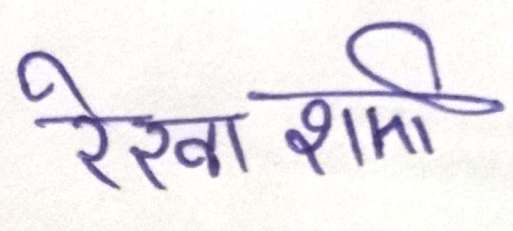 रेखा शर्मा